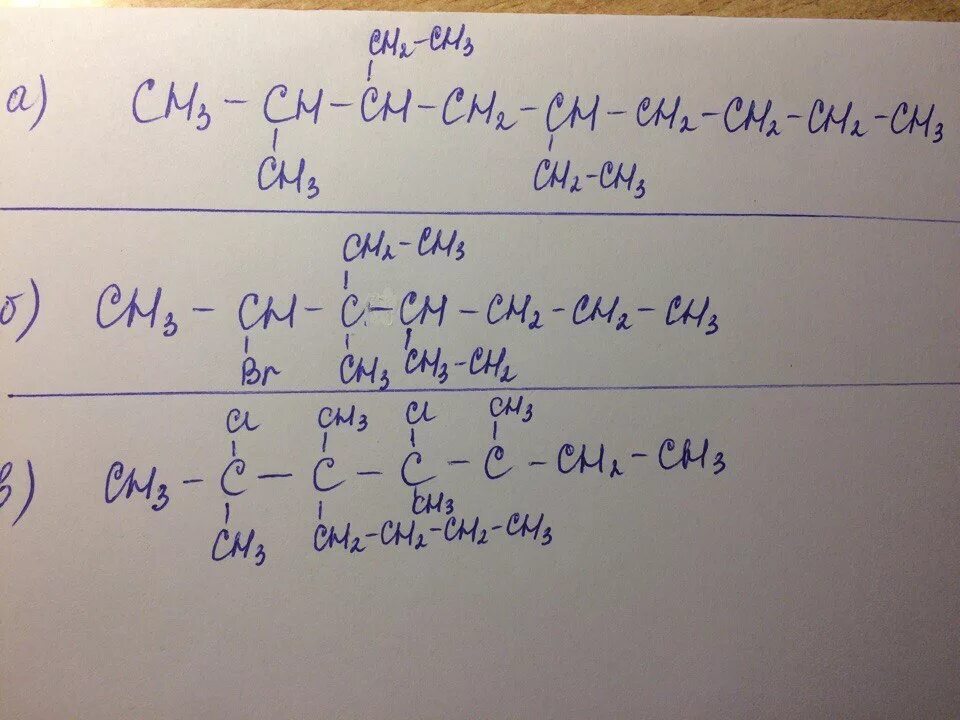 CH2-CH3
а) CH3 - CH - CH - CH2 - CH - CH2 - CH2 - CH2 - CH3
CH3 CH2-CH3
CH2-CH3
б) CH3 - CH - C - CH - CH2 - CH2 - CH3
Br CH3 CH3-CH2
Cl CH3 Cl CH3
в) CH3 - C - C - C - C - CH2 - CH3
CH3
CH3 CH2-CH2-CH2-CH3